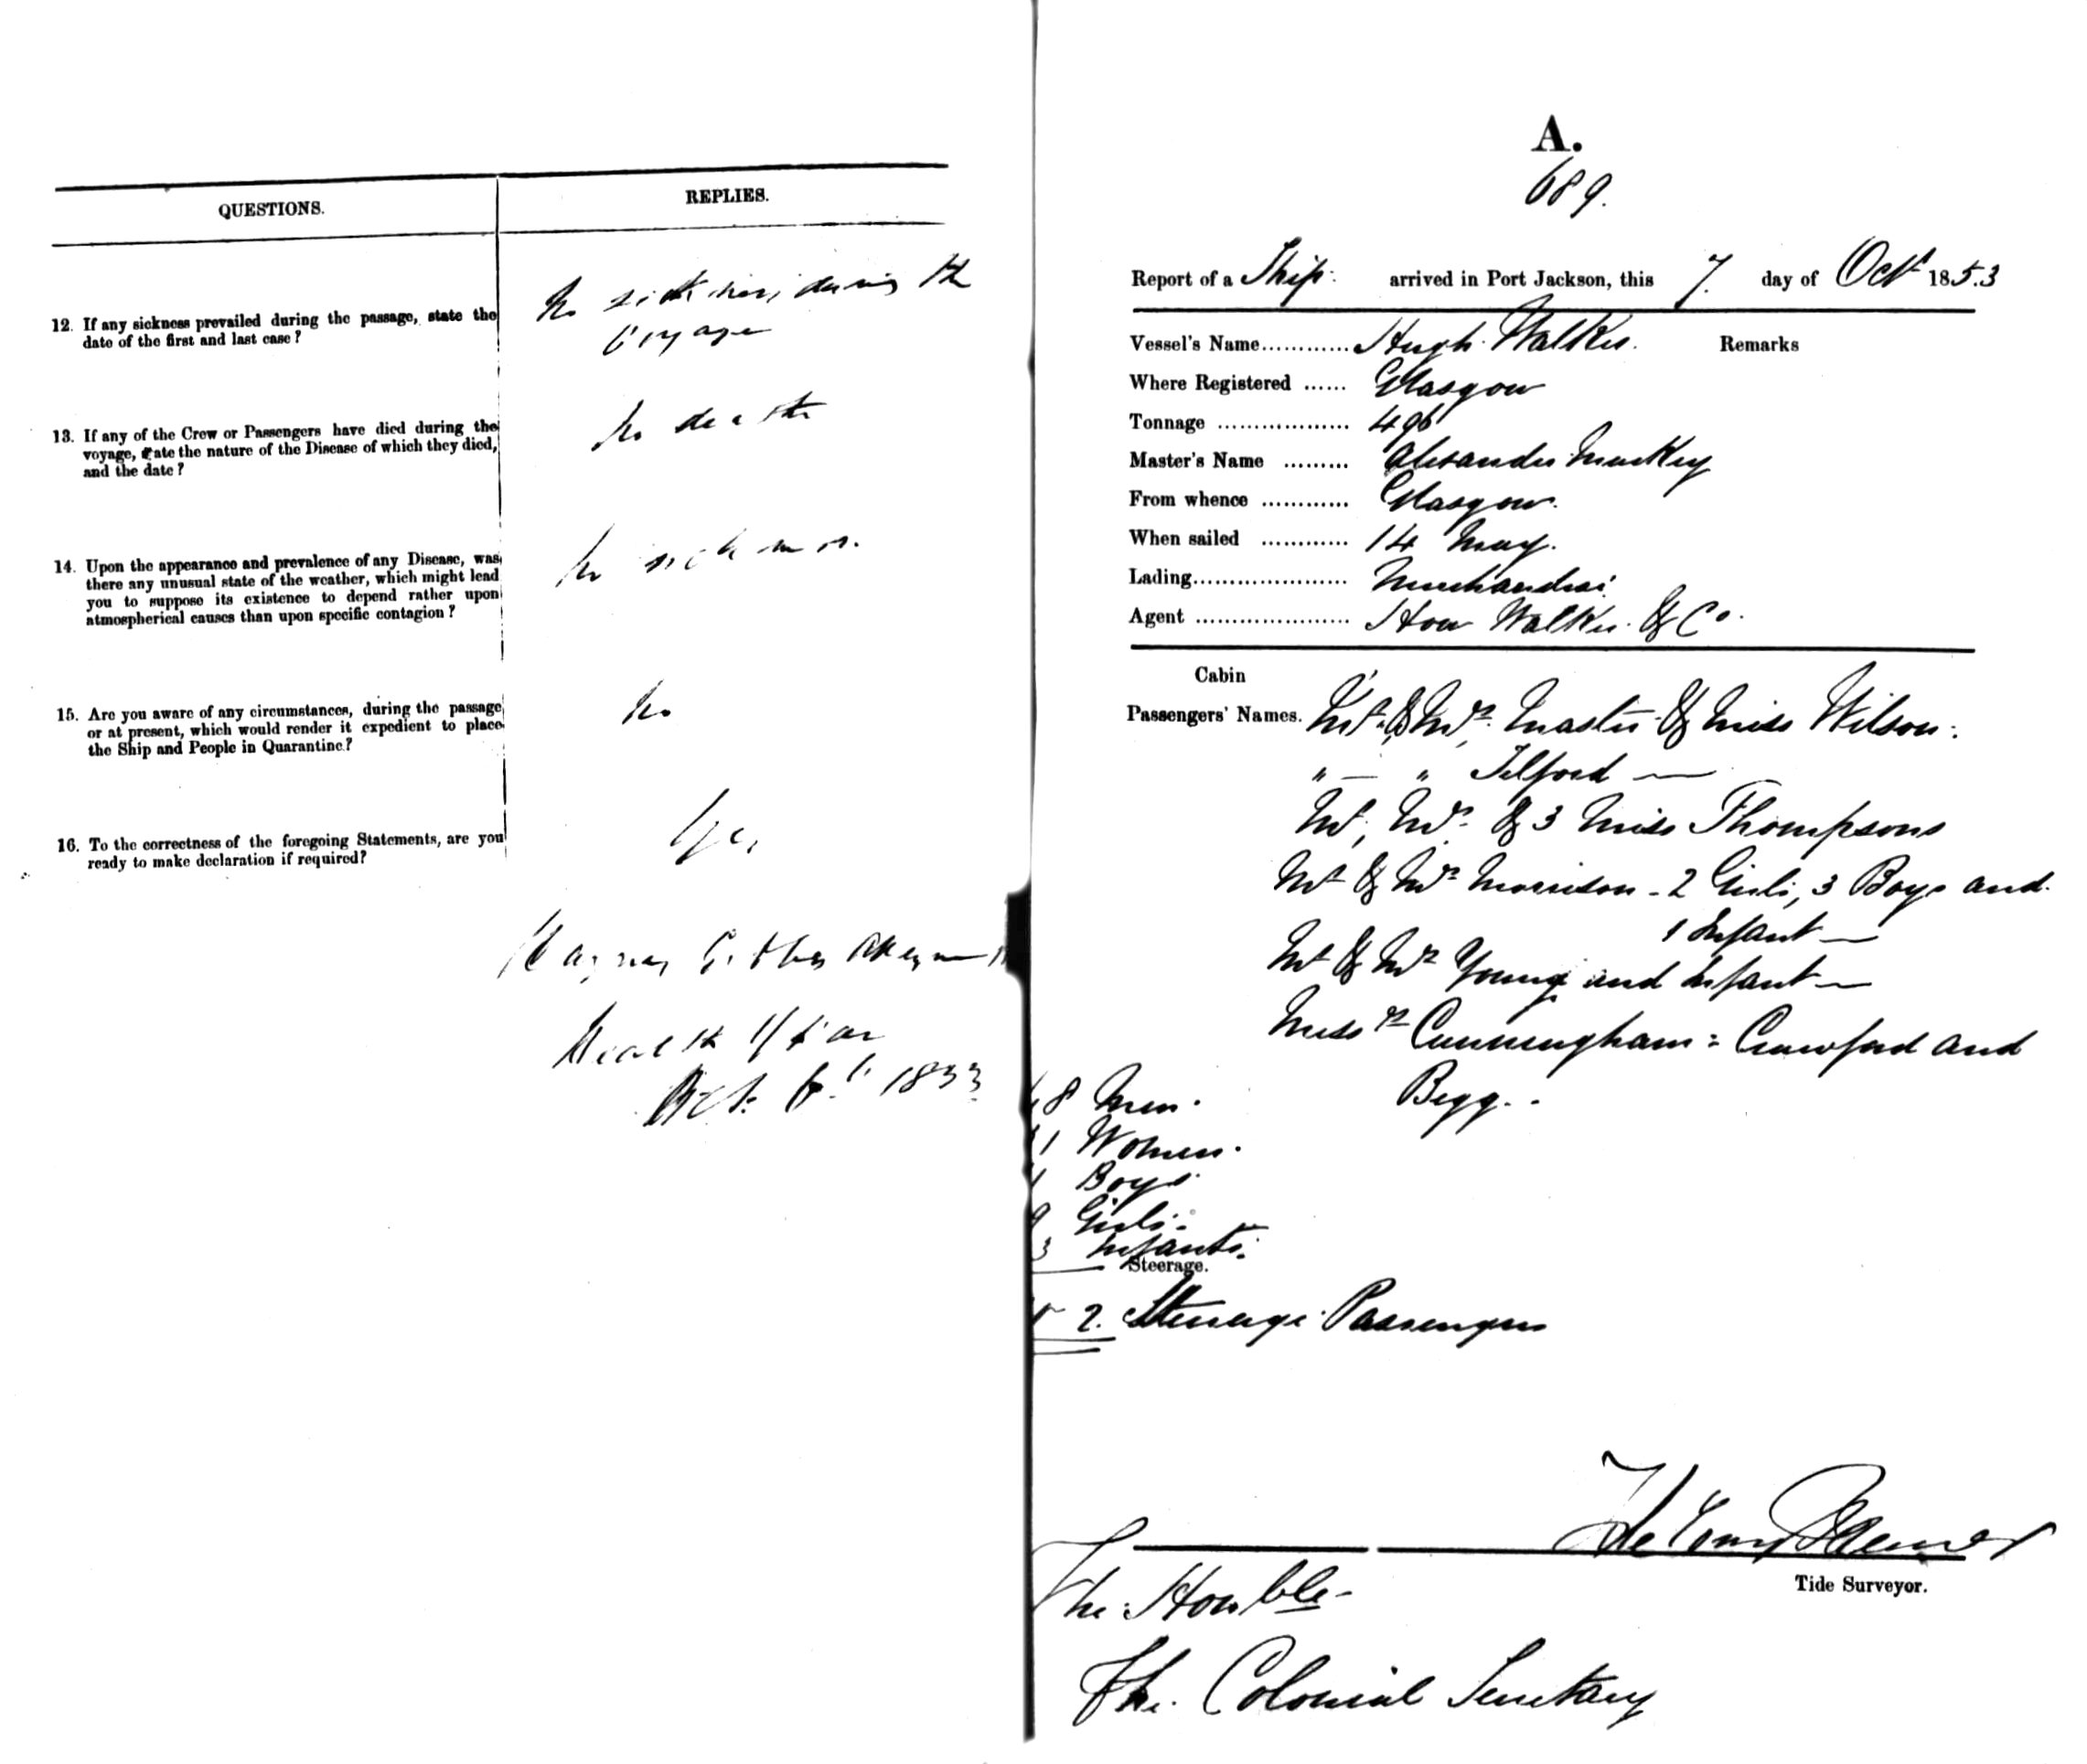 QUESTIONS.
REPLIES.
12. If any sickness prevailed during the passage, state the
date of the first and last case?
No sickness during the
voyage
13. If any of the Crew or Passengers have died during the
voyage, state the nature of the Disease of which they died,
and the date?
No death
14. Upon the appearance and prevalence of any Disease, was
there any unusual state of the weather, which might lead
you to suppose its existence to depend rather upon
atmospherical causes than upon specific contagion?
No sickness.
15. Are you aware of any circumstances, during the passage
or at present, which would render it expedient to place
the Ship and People in Quarantine?
No
16. To the correctness of the foregoing Statements, are you
ready to make declaration if required?
Yes
Health
Oct. 6th 1853
A.
689.
Report of a Ship: arrived in Port Jackson, this 7. day of Oct 1853
Vessel's Name............Hugh Walker. Remarks
Where Registered ...... Glasgow
Tonnage .................. 496
Master's Name ......... Alexander Mackey
From whence ............ Glasgow.
When sailed ............ 14 May.
Lading..................... Merchandise
Agent ..................... How Walker & Co.
Cabin
Passengers' Names. Mr. & Mrs. Master & Miss Wilson.
" — " Telford —
Mr, Mrs. & 3 Miss Thompsons
Mr & Mrs Morrison - 2 Girls, 3 Boys and
1 Infant —
Mr & Mrs Young and Infant —
Messrs Cunningham: Crawford and
Begg..
8 Men.
1 Women.
Boys
9 Girls.
3 Infants.
Steerage.
2. Steerage Passengers
Tide Surveyor.
The Honble
The Colonial Secretary